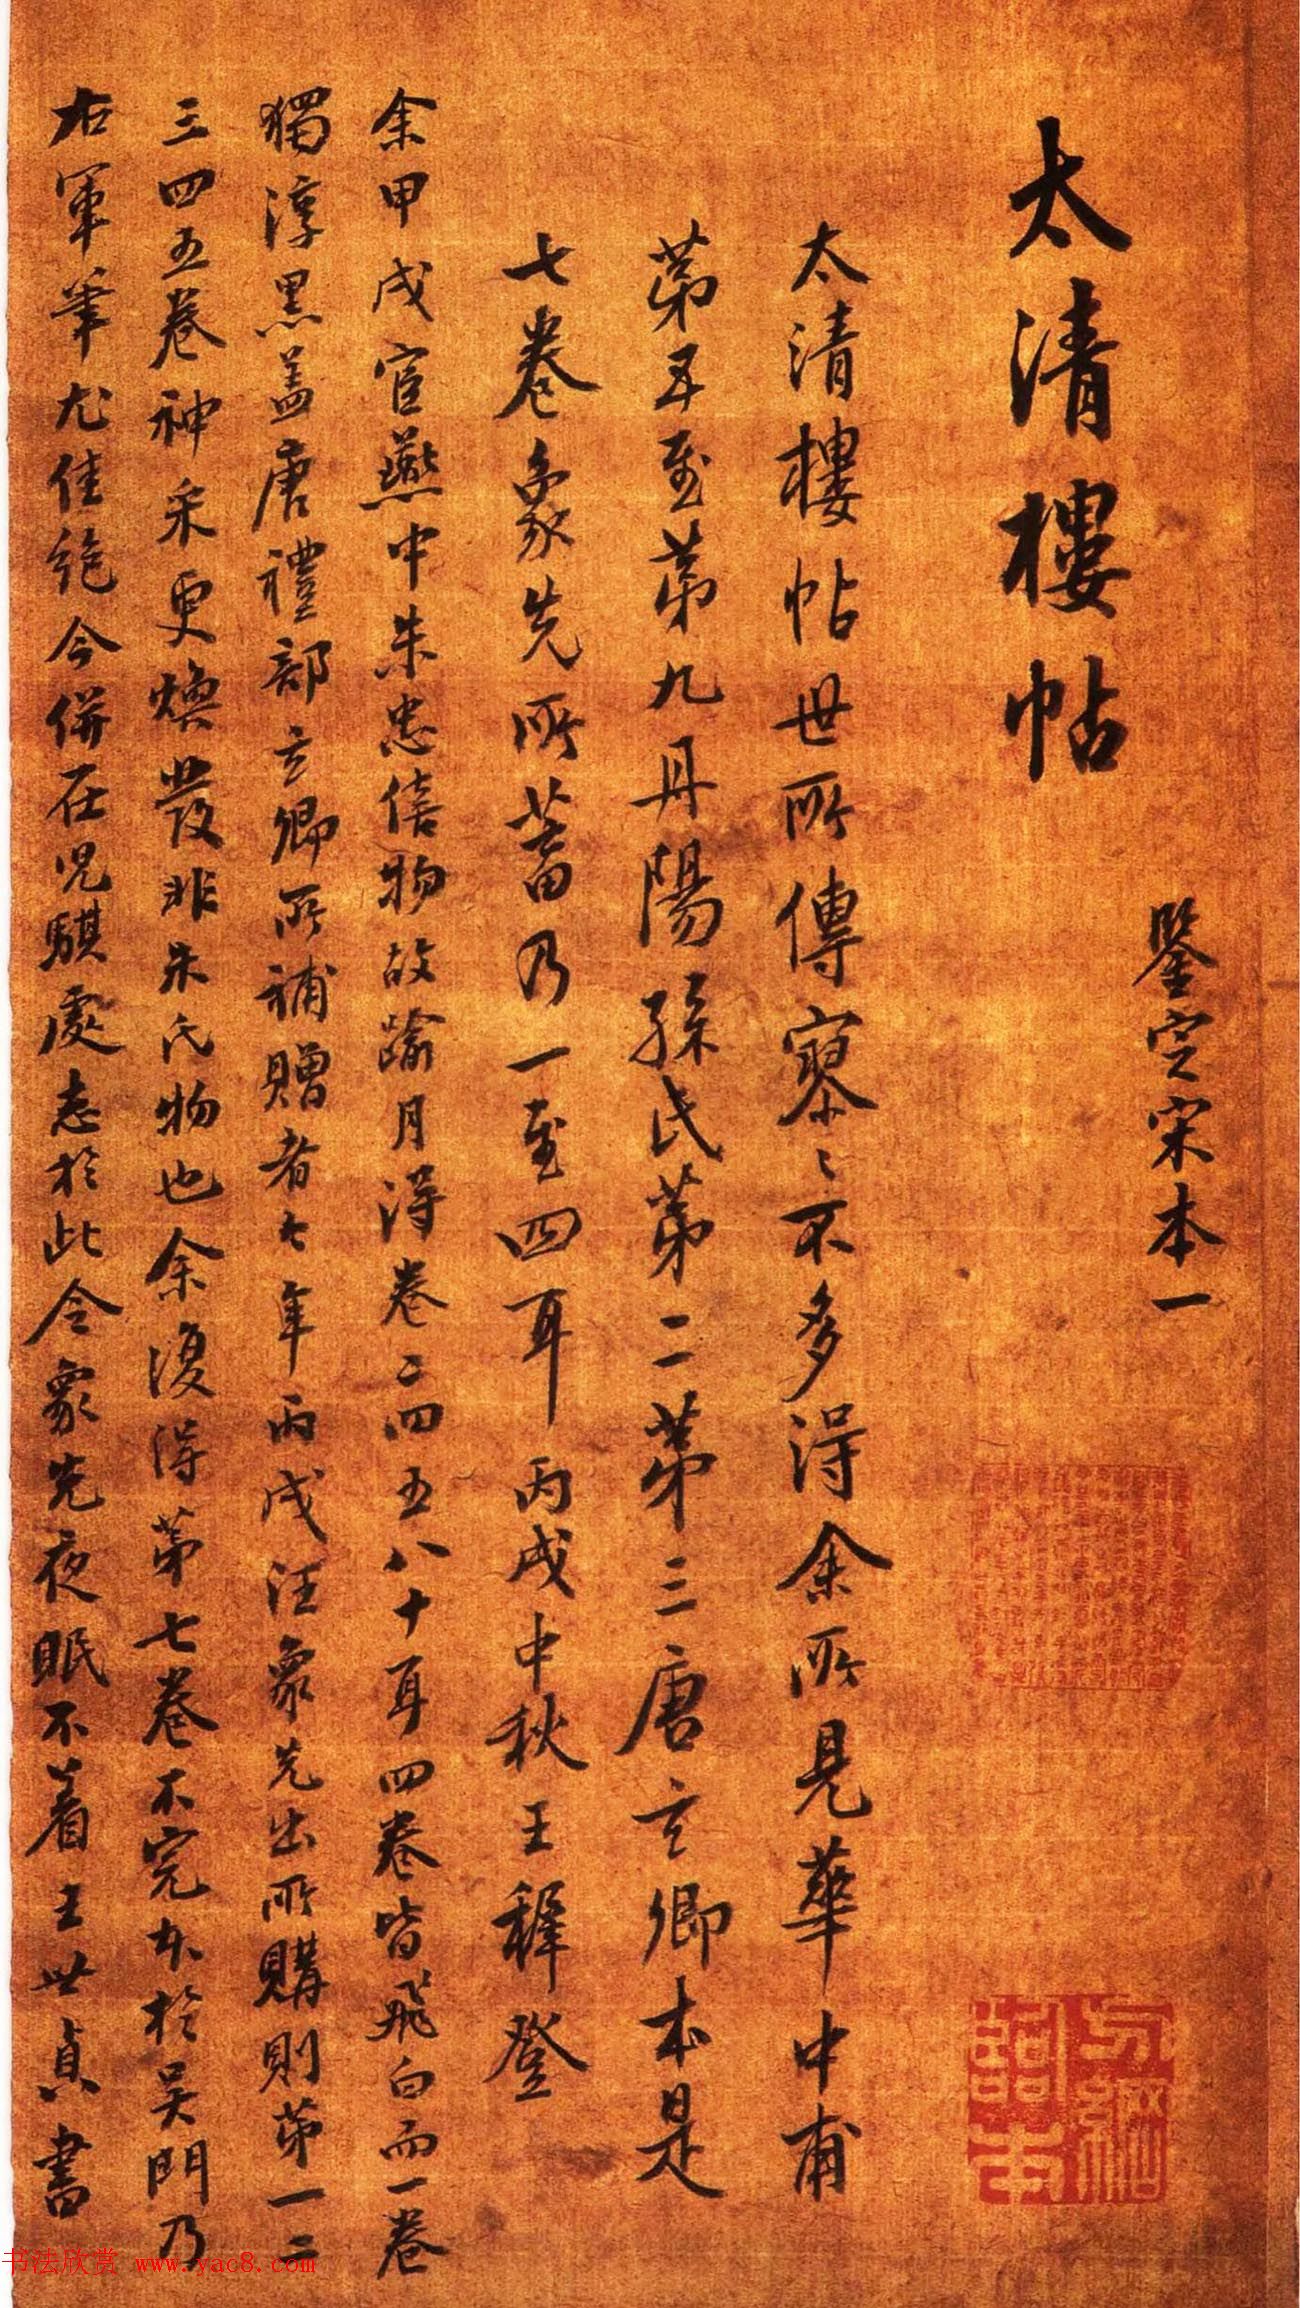 鑒定宋本一
太清樓帖
太清樓帖世所傳寥〻不多得余所見華中甫
第五至第九丹陽孫氏第二第三唐玄卿本是
七卷象先所蓄乃一至四耳丙戌中秋王穉登
余甲戌官燕中朱忠僖物故踰月得卷二四五八十耳四卷皆飛白而一卷
獨淳黑蓋唐禮部玄卿所補贈者今年丙戌汪象先出所購則第一二
三四五卷神采更煥發非朱氏物也余復得第七卷不完本於吳門乃
右軍筆尤佳絕今併在兒騏處志於此令象先夜眠不着王世貞書
书法欣赏 www.yac8.com